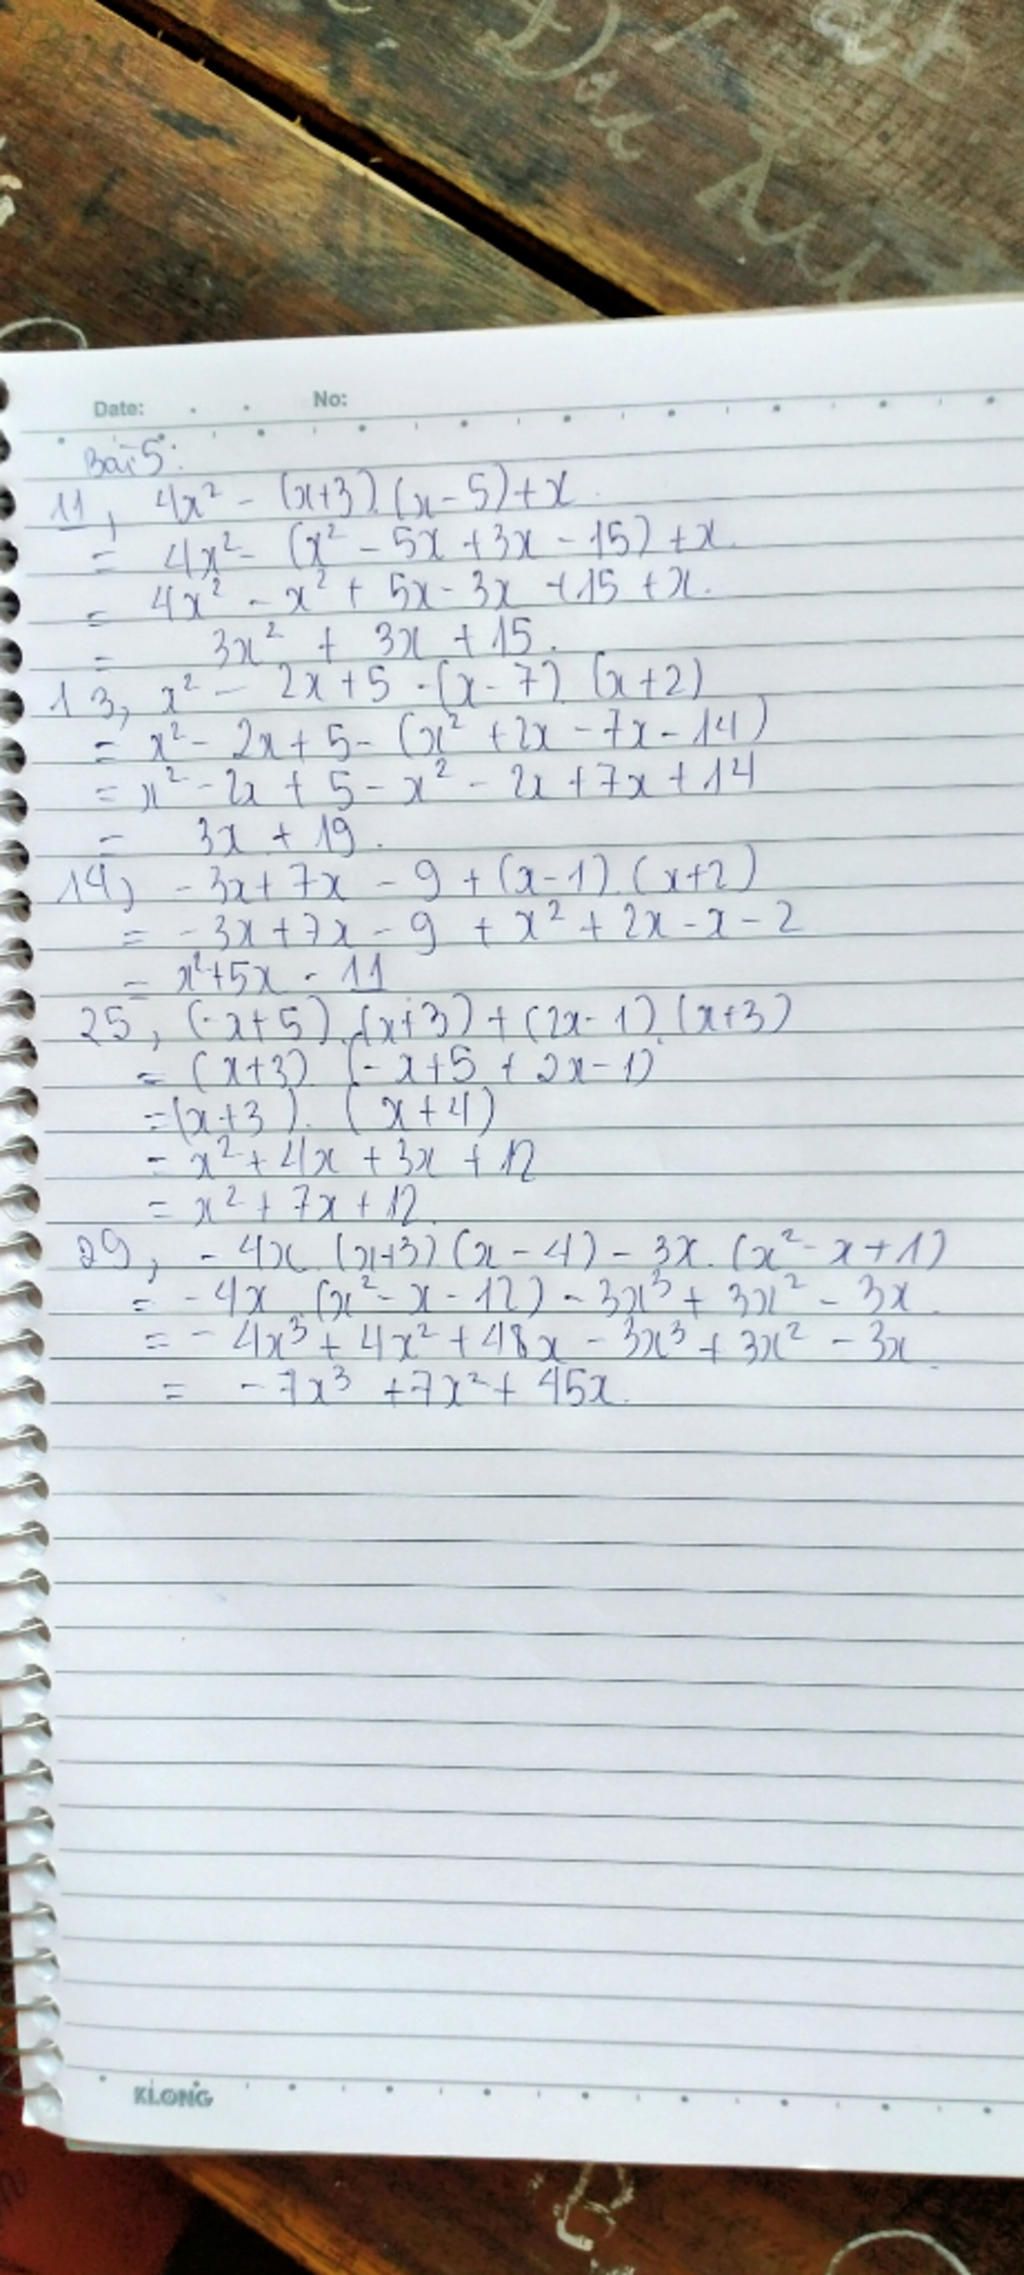 Date: No:
Bài 5:
11, 4x² - (x+3).(x-5)+x.
= 4x² - (x² - 5x + 3x - 15) + x.
= 4x² - x² + 5x - 3x + 15 + x.
= 3x² + 3x + 15.
13, x² - 2x + 5 - (x-7).(x+2)
= x² - 2x + 5 - (x² + 2x - 7x - 14)
= x² - 2x + 5 - x² - 2x + 7x + 14
= 3x + 19.
14, -3x + 7x - 9 + (x-1).(x+2)
= -3x + 7x - 9 + x² + 2x - x - 2
= x² + 5x - 11
25, (-x+5).(x+3) + (2x-1).(x+3)
= (x+3).(-x+5 + 2x-1)
= (x+3).(x+4)
= x² + 4x + 3x + 12
= x² + 7x + 12.
29, -4x.(x+3)(x-4) - 3x.(x² - x + 1)
= -4x.(x² - x - 12) - 3x³ + 3x² - 3x.
= -4x³ + 4x² + 48x - 3x³ + 3x² - 3x.
= -7x³ + 7x² + 45x.
KLONG